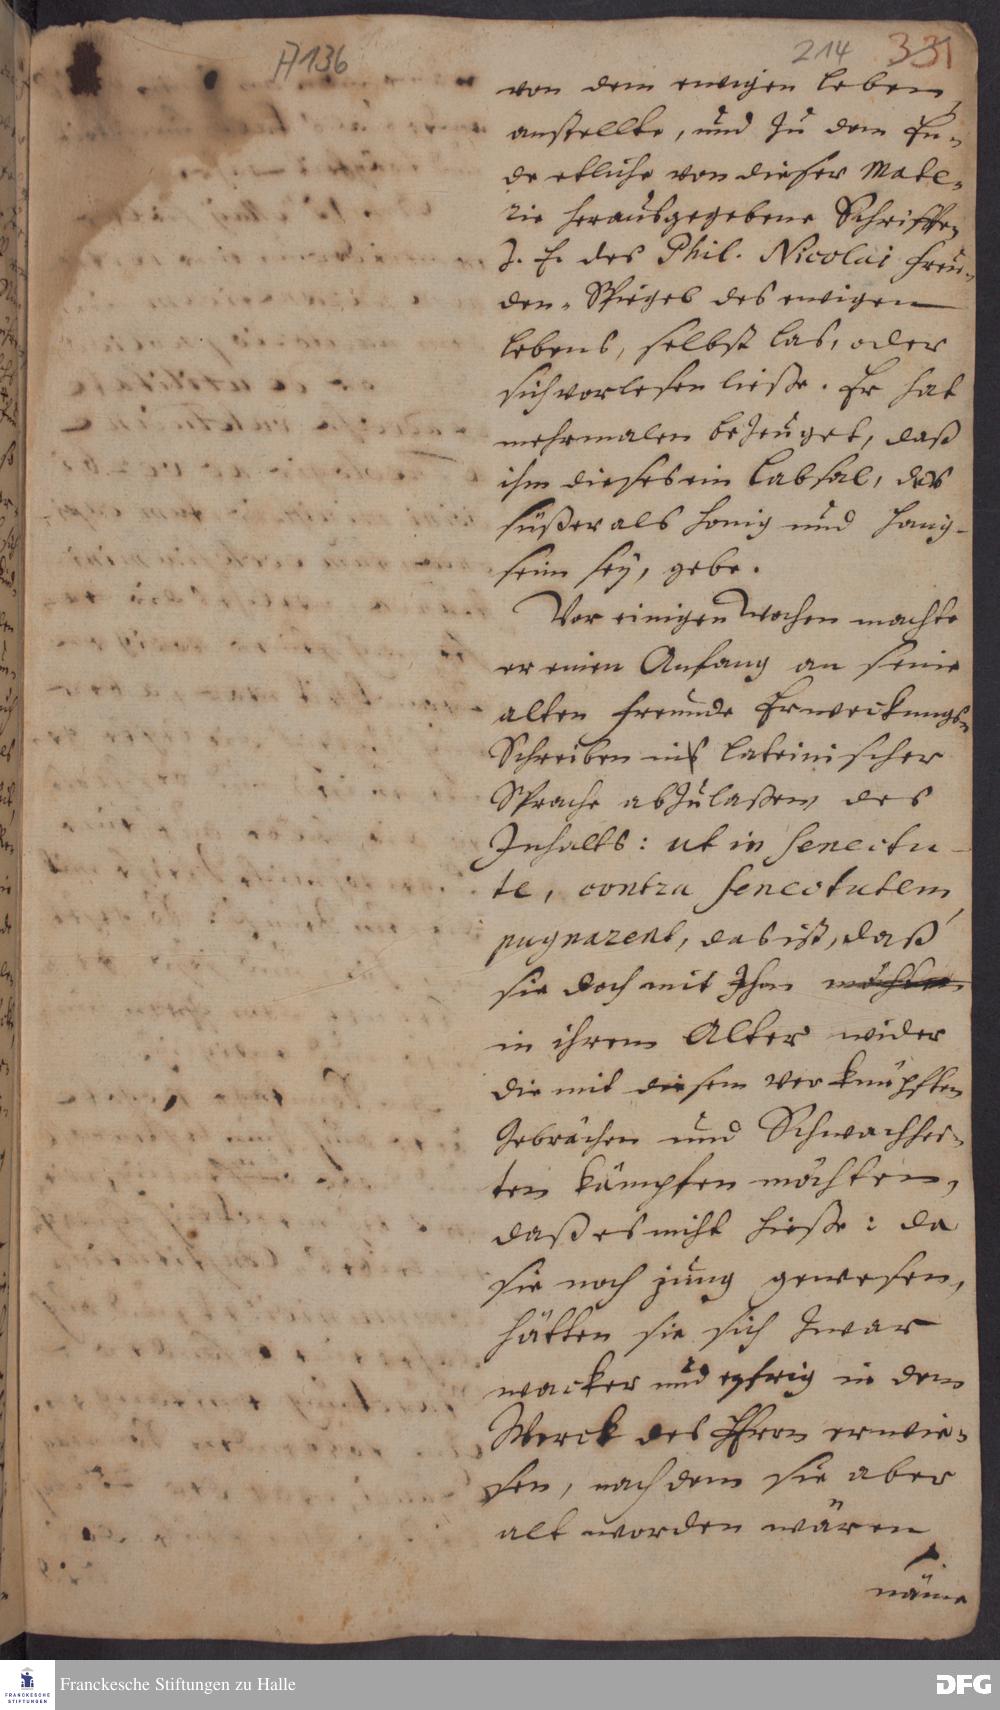 A 136
214 331
von dem ewigen Leben,
anstellte, und zu dem En-
de etliche von dieser Mate-
rie herausgegebene Schrifften
z. E. des Phil. Nicolai Freu-
den-Spiegel des ewigen
Lebens, selbst las, oder
sich vorlesen liesse. Er hat
mehrmalen bezeuget, daß
ihm dieses ein Labsal, das
süßer als Honig und Honig-
seim sey, gebe.
Vor einigen Wochen machte
er einen Anfang an seine
alten Freunde Erweckungs-
Schreiben in lateinischer
Sprache abzulaßen, des
Inhalts: ut in senectu-
te, contra senectutem
pugnarent, das ist, daß
sie doch mit Ihm möchten
in ihrem Alter wider
die mit diesem verknüpften
Gebrächen und Schwachhei-
ten kämpfen möchten,
daß es nicht hiesse: da
sie noch jung gewesen,
hätten sie sich zwar
wacker und eyfrig in dem
Werck des HErrn erwie-
sen, nachdem sie aber
alt worden wären
näme
Franckesche Stiftungen zu Halle
FRANCKESCHE
STIFTUNGEN
DFG